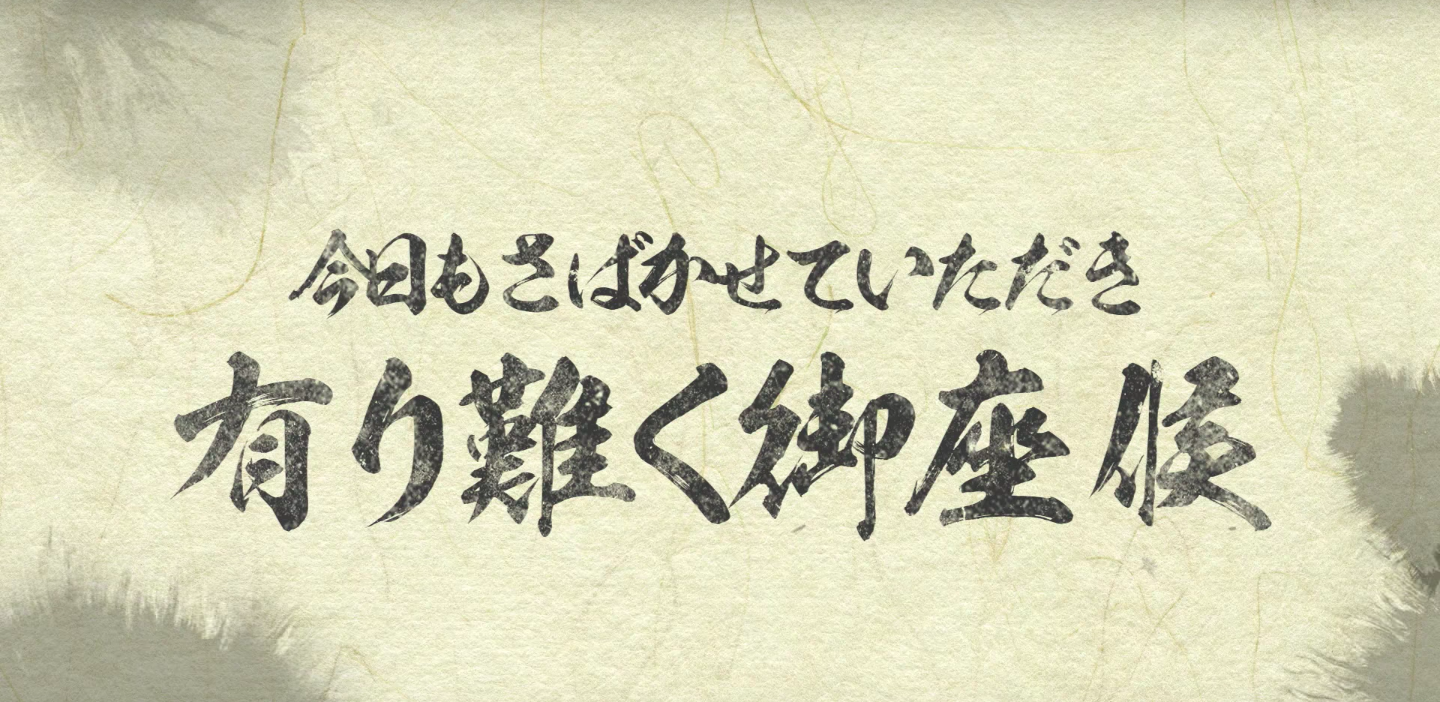 今日もさばかせていただき
有り難く御座候